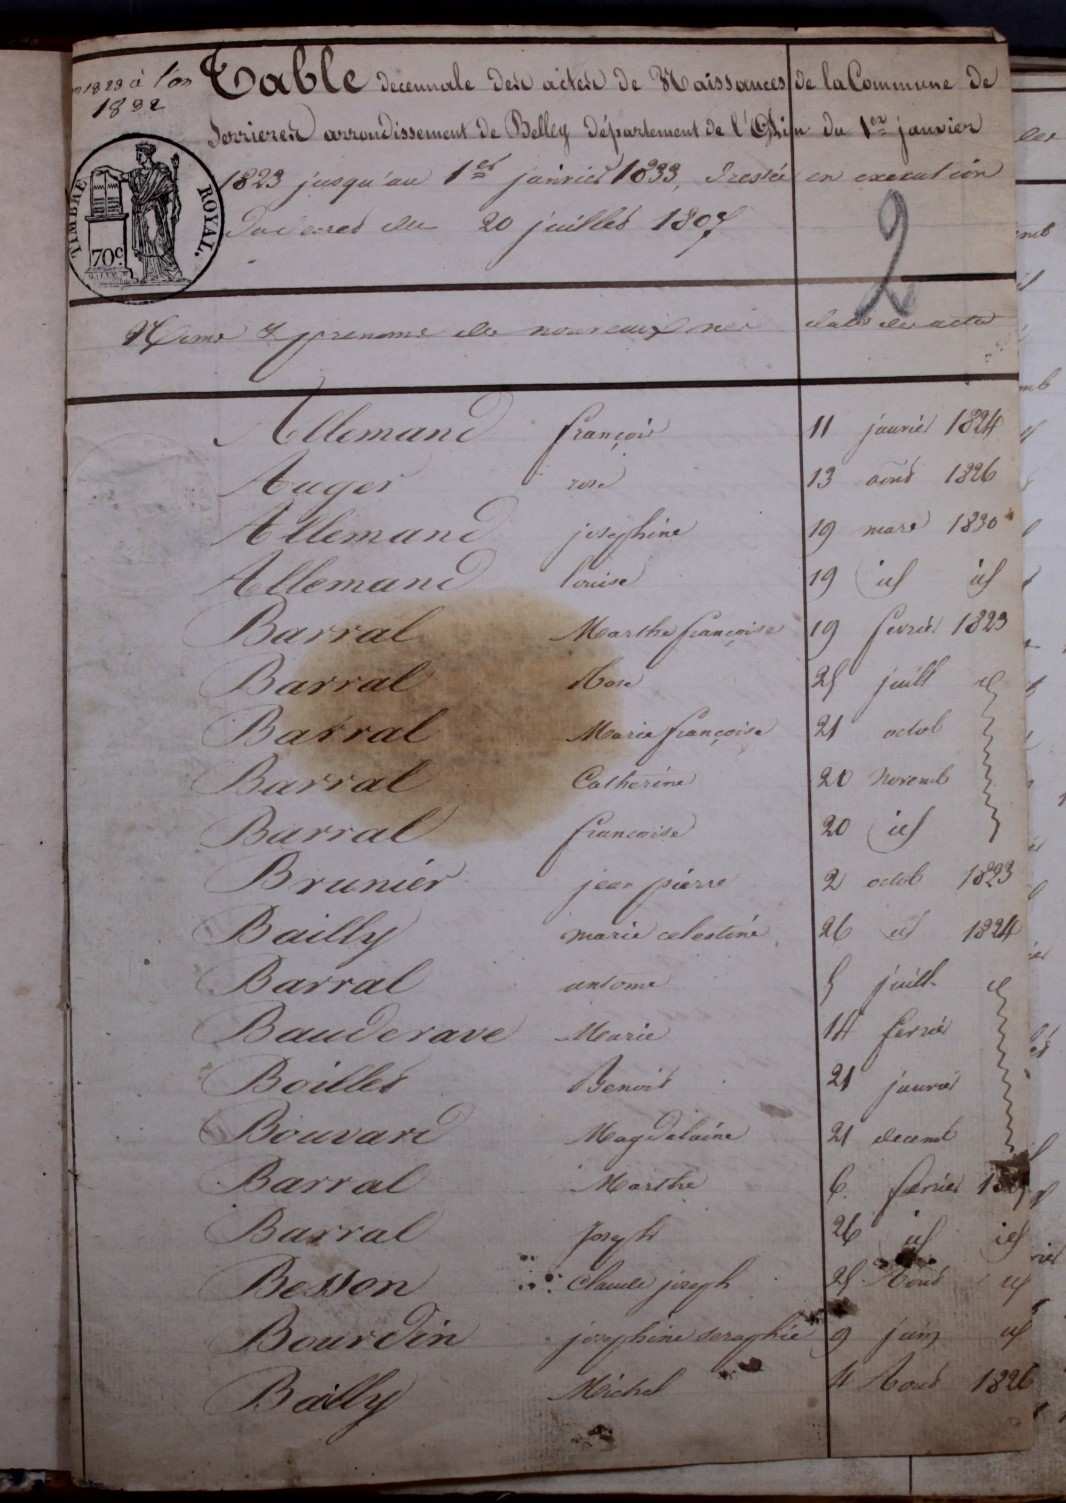 1823 à l'an
1832
Table décennale des actes de Naissances de la Commune de
Serrieres arrondissement de Belley département de l'Ain du 1er janvier
1823 jusqu'au 1er janvier 1833, dressée en execution
du decret du 20 juillet 1807
2
TIMBRE ROYAL.
70c
Noms & prenoms des nouveaux nés date des actes
Allemand françois 11 janvier 1824
Auger rose 13 aout 1826
Allemand josephine 19 mars 1830
Allemand louise 19 id id
Barral Marthe françoise 19 fevrier 1823
Barral Rose 25 juill id
Barral Marie françoise 21 octob
Barral Catherine 20 Novemb
Barral francoise 20 id
Brunier jean pierre 2 octob 1823
Bailly marie celestine 26 id 1824
Barral antoine 5 juill id
Bauderave Marie 14 fevrier
Boillet Benoit 21 janvier
Bouvard Magdelaine 21 decemb
Barral Marthe 6 fevrier
Barral Joseph 26 id id
Besson Claude joseph 25 Aout id
Bourdin josephine seraphie 9 juin id
Bailly Michel 11 Aout 1826